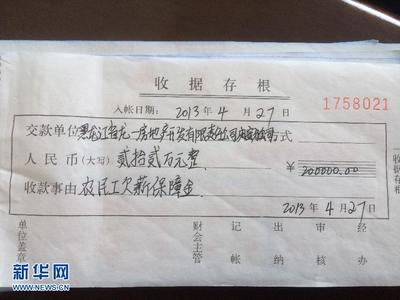 收据存根
入帐日期: 2013年4月27日
1758021
交款单位 黑龙江省龙一房地产开发有限责任公司 式
人民币(大写) 贰拾贰万元整 ¥ 200000.00
收款事由 农民工欠薪保障金
2013年4月27日
单位盖章 财会主管 记帐 出纳 审核 经办
收据存根
新华网